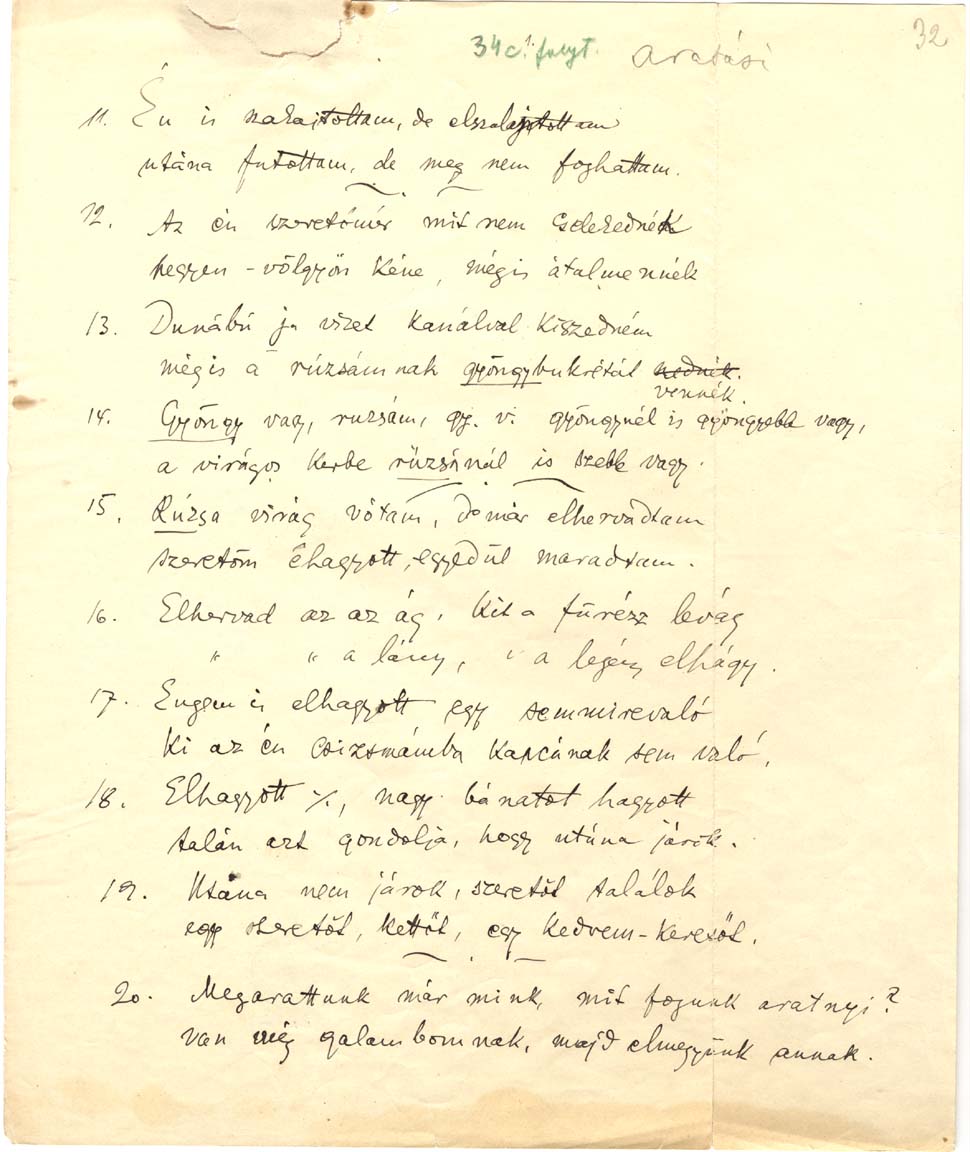 34c. folyt. Aratási 32
11. Én is szakajtottam, de elszalajtottam
utána futottam, de meg nem foghattam.
12. Az én szeretőmér mit nem cselekednék
hegyen-völgyön kéne, mégis átalmennék
13. Dunábú ja vizet kanálval kiszedném
mégis a rúzsámnak gyöngybukrétát
vennék.
14. Gyöngy vagy, ruzsám, gy. v. gyöngynél is gyöngyebb vagy,
a virágos kerbe rúzsánál is szebb vagy.
15. Rúzsa virág vótam, de már elhervadtam
szeretőm ehagyott, egyedűl maradtam.
16. Elhervad az az ág, kit a fűrész levág
" " a lány, " a legény elhágy.
17. Engem is elhagyott egy semmirevaló
Ki az én csizsmámba kapcának sem való,
18. Elhagyott %, nagy bánatot hagyott
talán azt gondolja, hogy utána járok.
19. Utána nem járok, szeretőt találok
egy szeretőt, kettőt, egy kedvem-keresőt.
20. Megarattunk már mink, mit fogunk aratnyi?
van még galambomnak, majd elmegyünk annak.